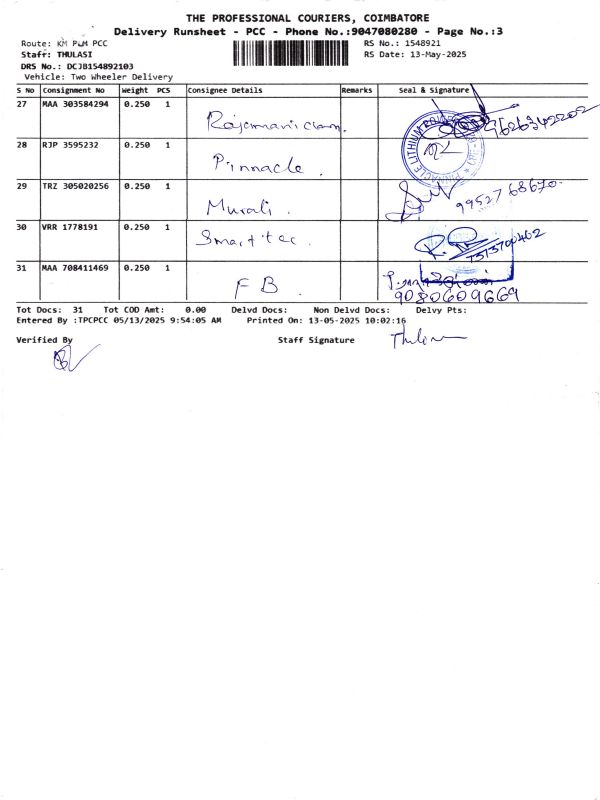 THE PROFESSIONAL COURIERS, COIMBATORE
Delivery Runsheet - PCC - Phone No.:9047080280 - Page No.:3
Route: KM PUM PCC RS No.: 1548921
Staff: THULASI RS Date: 13-May-2025
DRS No.: DCJB154892103
Vehicle: Two Wheeler Delivery
S No Consignment No Weight PCS Consignee Details Remarks Seal & Signature
27 MAA 303584294 0.250 1 Rajamanickam. 9626342202
28 RJP 3595232 0.250 1 Pinnacle. PINNACLE LITHIUM
29 TRZ 305020256 0.250 1 Murali. 9952768670.
30 VRR 1778191 0.250 1 Smart tec. 7373700462
31 MAA 708411469 0.250 1 F B. 9080609669
Tot Docs: 31 Tot COD Amt: 0.00 Delvd Docs: Non Delvd Docs: Delvy Pts:
Entered By :TPCPCC 05/13/2025 9:54:05 AM Printed On: 13-05-2025 10:02:16
Verified By Staff Signature